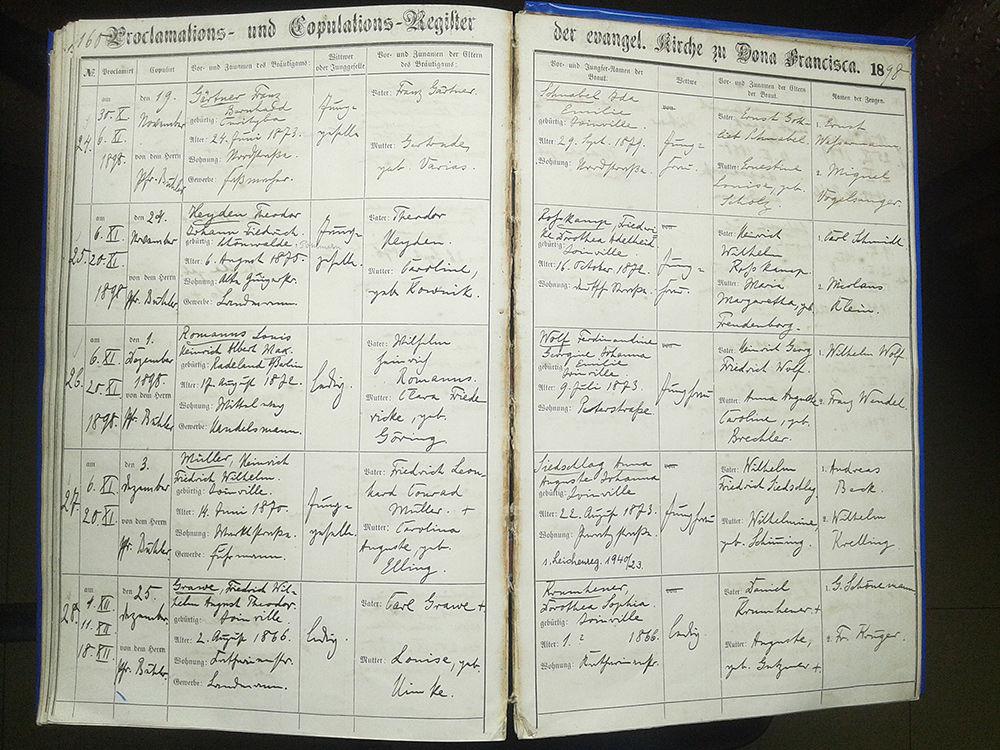 160 Proclamations- und Copulations-Register
der evangel. Kirche zu Dona Francisca. 1898
№ Proclamirt Copulirt Vor- und Zunamen des Bräutigams: Wittwer oder Junggeselle Vor- und Zunamen der Eltern des Bräutigams:
Vor- und Jungfer-Namen der Braut. Wittwe Vor- und Zunamen der Eltern der Braut. Namen der Zeugen.
24.
am
30. X.
6. XI.
1898.
den 19.
November
von dem Herrn
Pfr. Bühler
Gärtner Franz
Bernhard
gebürtig: Curityba
Alter: 24. Juni 1873.
Wohnung: Nordstraße.
Gewerbe: Faßmacher.
Jung=
geselle
Vater: Franz Gärtner.
Mutter: Gertrude
geb. Varias.
Schnabel Ida
Emilie
gebürtig: Joinville.
Alter: 29. Sept. 1879.
Wohnung: Nordstraße.
Jung=
frau.
Vater: Ernst Gott
lieb Schnabel.
Mutter: Ernestine
Louise, geb.
Scholz
1. Ernst
Wassermann
2. Miguel
Vogelsanger.
25.
am
6. XI.
20. XI.
1898
den 24.
November
von dem Herrn
Pfr. Bühler
Heyden Theodor
Johann Friedrich.
gebürtig: Pommern
Alter: 6. August 1875.
Wohnung:
Gewerbe: Landmann.
Jung=
geselle.
Vater: Theodor
Heyden.
Mutter: Caroline,
geb.
Rosskamp, Friederi
ke Dorothea Adelheid
gebürtig: Joinville
Alter: 16. October, 1872.
Wohnung:
Jung=
frau.
Vater: Heinrich
Wilhelm
Rosskamp.
Mutter: Maria
Margaretha, geb.
Freudenborg.
1. Carl Schmidt.
2. Nicolaus
Klein.
26.
am
6. XI.
20. XI.
1898.
den 1.
Dezember
1898.
von dem Herrn
Pfr. Bühler
Romanus Louis
Heinrich Albert Max.
gebürtig: Radeland Berlin
Alter: 17. August 1872.
Wohnung: Mittelweg
Gewerbe: Handelsmann.
ledig.
Vater: Wilhelm
Heinrich
Romanus.
Mutter: Clara Friede
ricke, geb.
Göring
Wolf Ferdinandine
Georgine Johanna
Emilie
gebürtig: Joinville
Alter: 9. Juli 1873.
Wohnung: Peterstraße
Jungfrau
Vater: Heinrich Georg
Friedrich Wolf.
Mutter: Anna Auguste
Caroline, geb.
Brechler.
1. Wilhelm Wolf
2. Franz Wendel.
27.
am
6. XI
20. XI.
den 3.
Dezember
von dem Herrn
Pfr. Bühler
Müller, Heinrich
Friedrich Wilhelm.
gebürtig: Joinville.
Alter: 14. Juni 1870.
Wohnung: Marktstraße.
Gewerbe: Fuhrmann.
Jung=
geselle.
Vater: Friedrich Leon
hard Conrad
Müller. +
Mutter: Carolina
Auguste, geb.
Elling.
Siedschlag Anna
Auguste Johanna
gebürtig: Joinville
Alter: 22. August 1873.
Wohnung:
s. Leichenreg. 1940/23.
Jungfrau
Vater: Wilhelm
Friedrich Siedschlag.
Mutter: Wilhelmine
geb. Schiming.
1. Andreas
Beck.
2. Wilhelm
Krelling
28.
am
4. XII
11. XII
18. XII
den 25.
Dezember
von dem Herrn
Pfr. Bühler.
Grawe, Friedrich Wil-
helm August Theodor.
gebürtig: Joinville.
Alter: 2. August 1866.
Wohnung:
Gewerbe: Landmann.
ledig.
Vater: Carl Grawe +
Mutter: Louise, geb.
Krumheuer,
Dorothea Sophia.
gebürtig: Joinville
Alter: 1. 1866.
Wohnung:
ledig
Vater: Daniel
Krumheuer +
Mutter: Auguste,
geb. Gutzmer +
1. G. Schönemann
2. Fr. Krüger.